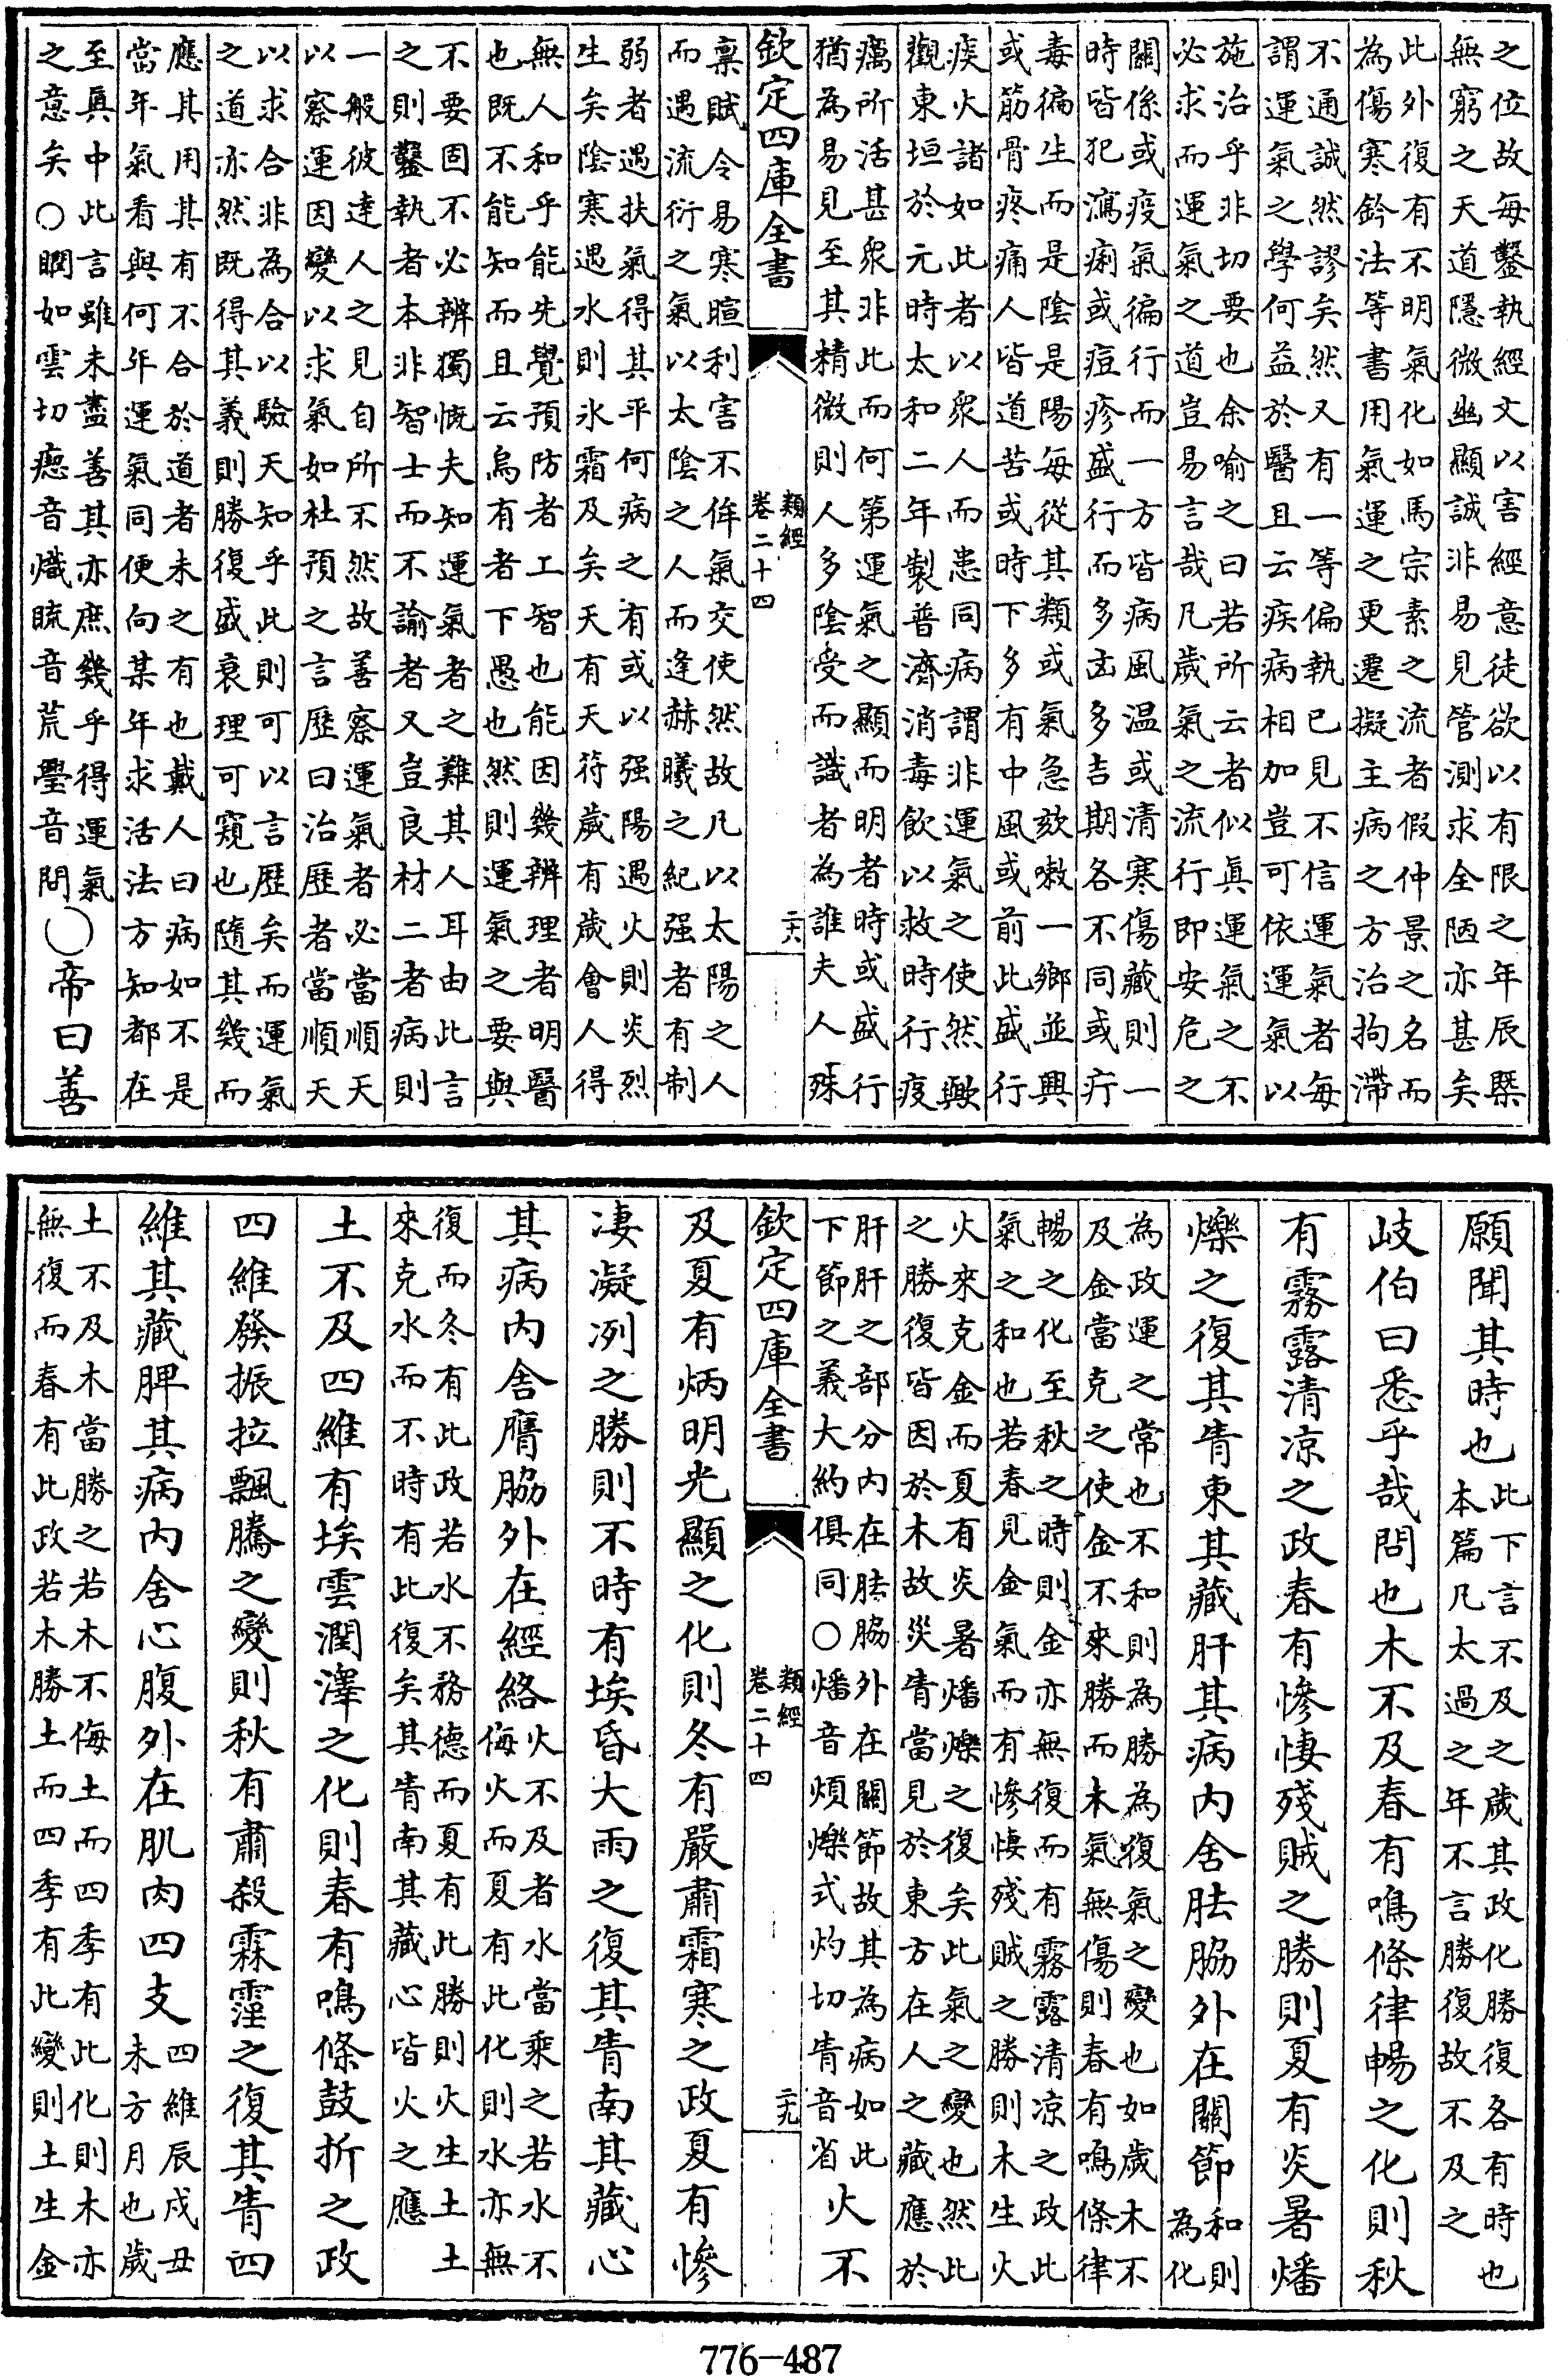 之位故每鑿執經文以害經意徒欲以有限之年辰槩
無窮之天道隱微幽顯誠非易見管測求全陋亦甚矣
此外復有不明氣化如馬宗素之流者假仲景之名而
為傷寒鈐法等書用氣運之更遷擬主病之方治拘滯
不通誠然謬矣然又有一等偏執已見不信運氣者每
謂運氣之學何益於醫且云疾病相加豈可依運氣以
施治乎非切要也余喻之曰若所云者似真運氣之不
必求而運氣之道豈易言哉凡歲氣之流行即安危之
關係或疫氣徧行而一方皆病風温或清寒傷藏則一
時皆犯瀉痢或痘疹盛行而多凶多吉期各不同或疔
毒徧生而是陰是陽每從其類或氣急欬嗽一鄉並興
或筋骨疼痛人皆道苦或時下多有中風或前此盛行
痰火諸如此者以衆人而患同病謂非運氣之使然歟
觀東垣於元時太和二年製普濟消毒飲以救時行疫
癘所活甚衆非此而何第運氣之顯而明者時或盛行
猶為易見至其精微則人多陰受而識者為誰夫人殊
欽定四庫全書
類經
卷二十四
二十八
禀賦令易寒暄利害不侔氣交使然故凡以太陽之人
而遇流衍之氣以太陰之人而逢赫曦之紀强者有制
弱者遇扶氣得其平何病之有或以强陽遇火則炎烈
生矣陰寒遇水則氷霜及矣天有天符歲有歲會人得
無人和乎能先覺預防者工智也能因幾辨理者明醫
也既不能知而且云烏有者下愚也然則運氣之要與
不要固不必辨獨慨夫知運氣者之難其人耳由此言
之則鑿執者本非智士而不諭者又豈良材二者病則
一般彼達人之見自所不然故善察運氣者必當順天
以察運因變以求氣如杜預之言歷曰治歷者當順天
以求合非為合以驗天知乎此則可以言歷矣而運氣
之道亦然既得其義則勝復盛衰理可窺也隨其幾而
應其用其有不合於道者未之有也戴人曰病如不是
當年氣看與何年運氣同便向某年求活法方知都在
至真中此言雖未盡善其亦庶幾乎得運氣
之意矣○瞤如雲切瘛音熾䀮音荒璺音問○帝曰善
願聞其時也此下言不及之歲其政化勝復各有時也
本篇凡太過之年不言勝復故不及之
岐伯曰悉乎哉問也木不及春有鳴條律暢之化則秋
有霧露清凉之政春有慘悽殘賊之勝則夏有炎暑燔
爍之復其眚東其藏肝其病内舍胠脇外在關節和則
為化
為政運之常也不和則為勝為復氣之變也如歲木不
及金當克之使金不來勝而木氣無傷則春有鳴條律
暢之化至秋之時則金亦無復而有霧露清凉之政此
氣之和也若春見金氣而有慘悽殘賊之勝則木生火
火來克金而夏有炎暑燔爍之復矣此氣之變也然此
之勝復皆因於木故災眚當見於東方在人之藏應於
肝肝之部分内在胠脇外在關節故其為病如此
下節之義大約俱同○燔音煩爍式灼切眚音省火不
欽定四庫全書
類經
卷二十四
二十九
及夏有炳明光顯之化則冬有嚴肅霜寒之政夏有慘
凄凝冽之勝則不時有埃昏大雨之復其眚南其藏心
其病内舍膺脇外在經絡火不及者水當乘之若水不
侮火而夏有此化則水亦無
復而冬有此政若水不務德而夏有此勝則火生土土
來克水而不時有此復矣其眚南其藏心皆火之應
土不及四維有埃雲潤澤之化則春有鳴條鼓折之政
四維發振拉飄騰之變則秋有肅殺霖霪之復其眚四
維其藏脾其病内舍心腹外在肌肉四支四維辰戍丑
未方月也歲
土不及木當勝之若木不侮土而四季有此化則木亦
無復而春有此政若木勝土而四季有此變則土生金
776-487